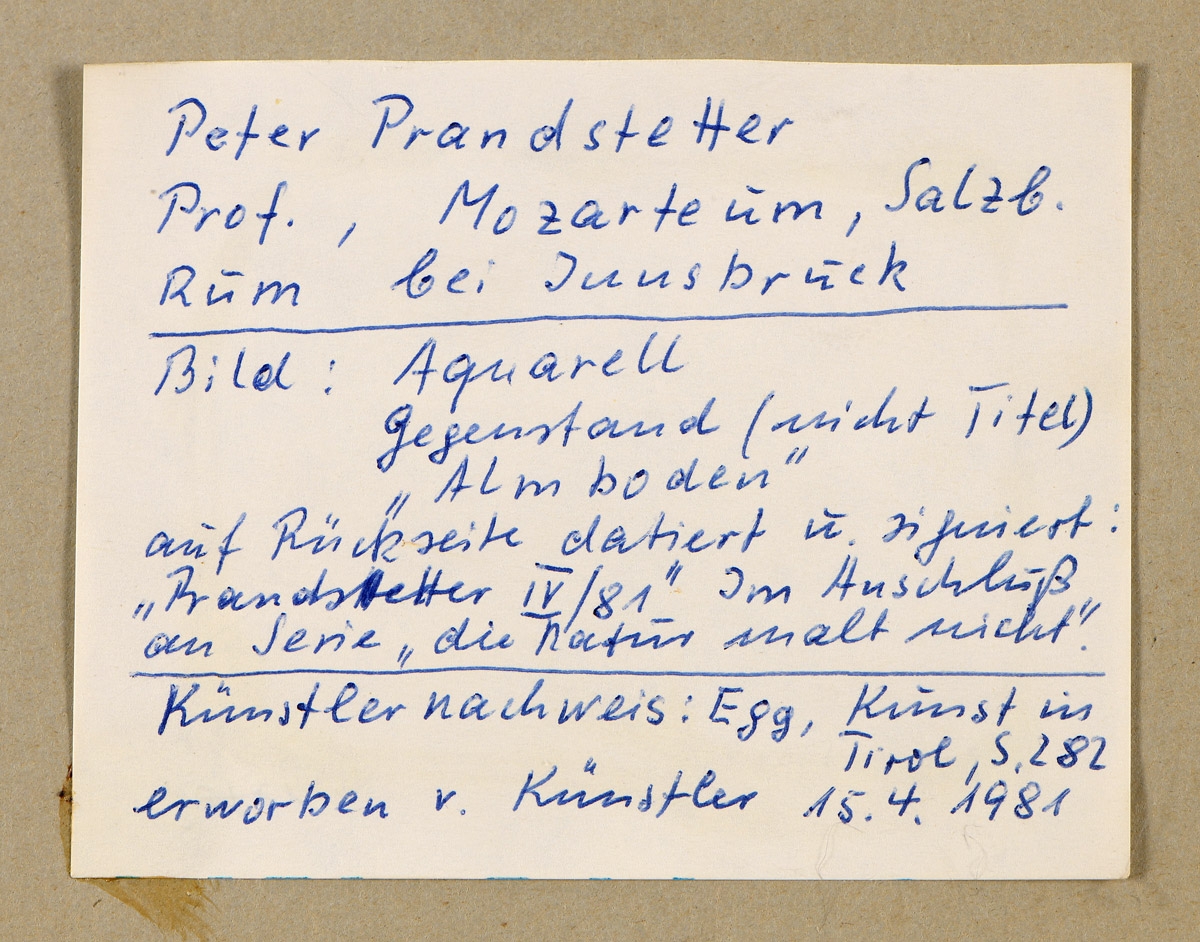 Peter Prandstetter
Prof., Mozarteum, Salzb.
Rum bei Innsbruck
Bild: Aquarell
Gegenstand (nicht Titel)
„Almboden"
auf Rückseite datiert u. signiert:
„Prandstetter IV/81" Im Anschluß
an Serie „die Natur malt nicht".
Künstlernachweis: Egg, Kunst in
Tirol, S. 282
erworben v. Künstler 15.4.1981